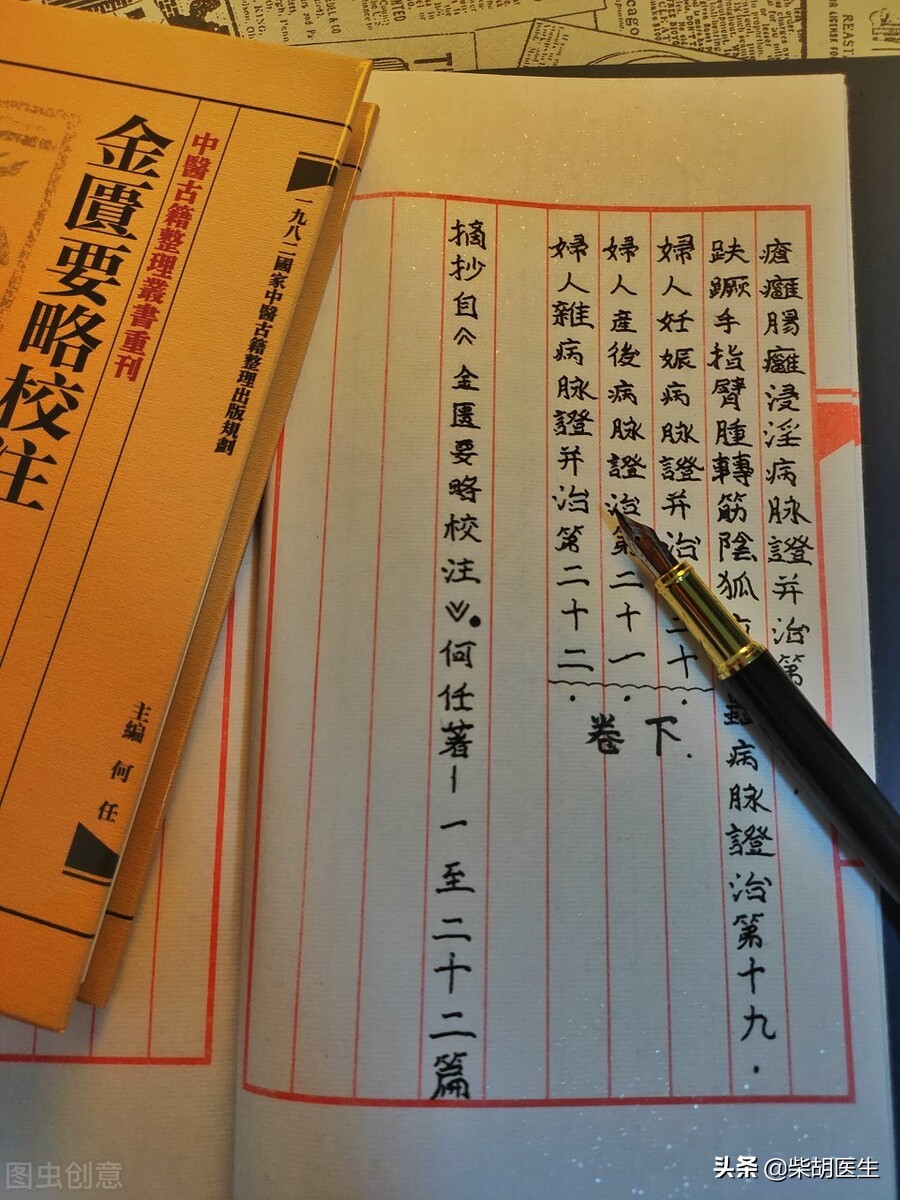 瘡癰腸癰浸淫病脉證并治第
趺蹶手指臂腫轉筋陰狐 蟲病脉證治第十九.
婦人妊娠病脉證并治 二十.
婦人産後病脉證治第二十一.
婦人雜病脉證并治第二十二.
卷下.
摘抄自《金匱要略校注》.何任著—一至二十二篇
一九八二國家中醫古籍整理出版規劃
中醫古籍整理叢書重刊
金匱要略校注
主編 何 任
图虫创意
头条 @柴胡医生